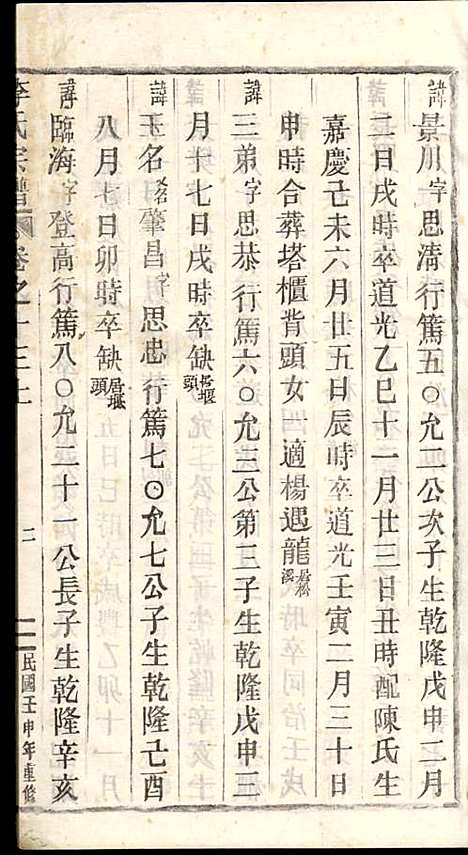 諱景川字思清行篤五〇允二公次子生乾隆戊申二月
二日戌時卒道光乙巳十一月廿三日丑時配陳氏生
嘉慶己未六月廿五日辰時卒道光壬寅二月三十日
申時合葬塔櫃背頭女一適楊遇龍居松溪
諱三弟字思恭行篤六〇允三公第三子生乾隆戊申三
月十七日戌時卒缺居堰頭
諱玉名名肇昌字思忠行篤七〇允七公子生乾隆己酉
八月七日卯時卒缺居堰頭
諱臨海字登高行篤八〇允二十一公長子生乾隆辛亥
李氏宗譜 卷之十三上 二 民國壬申年重修